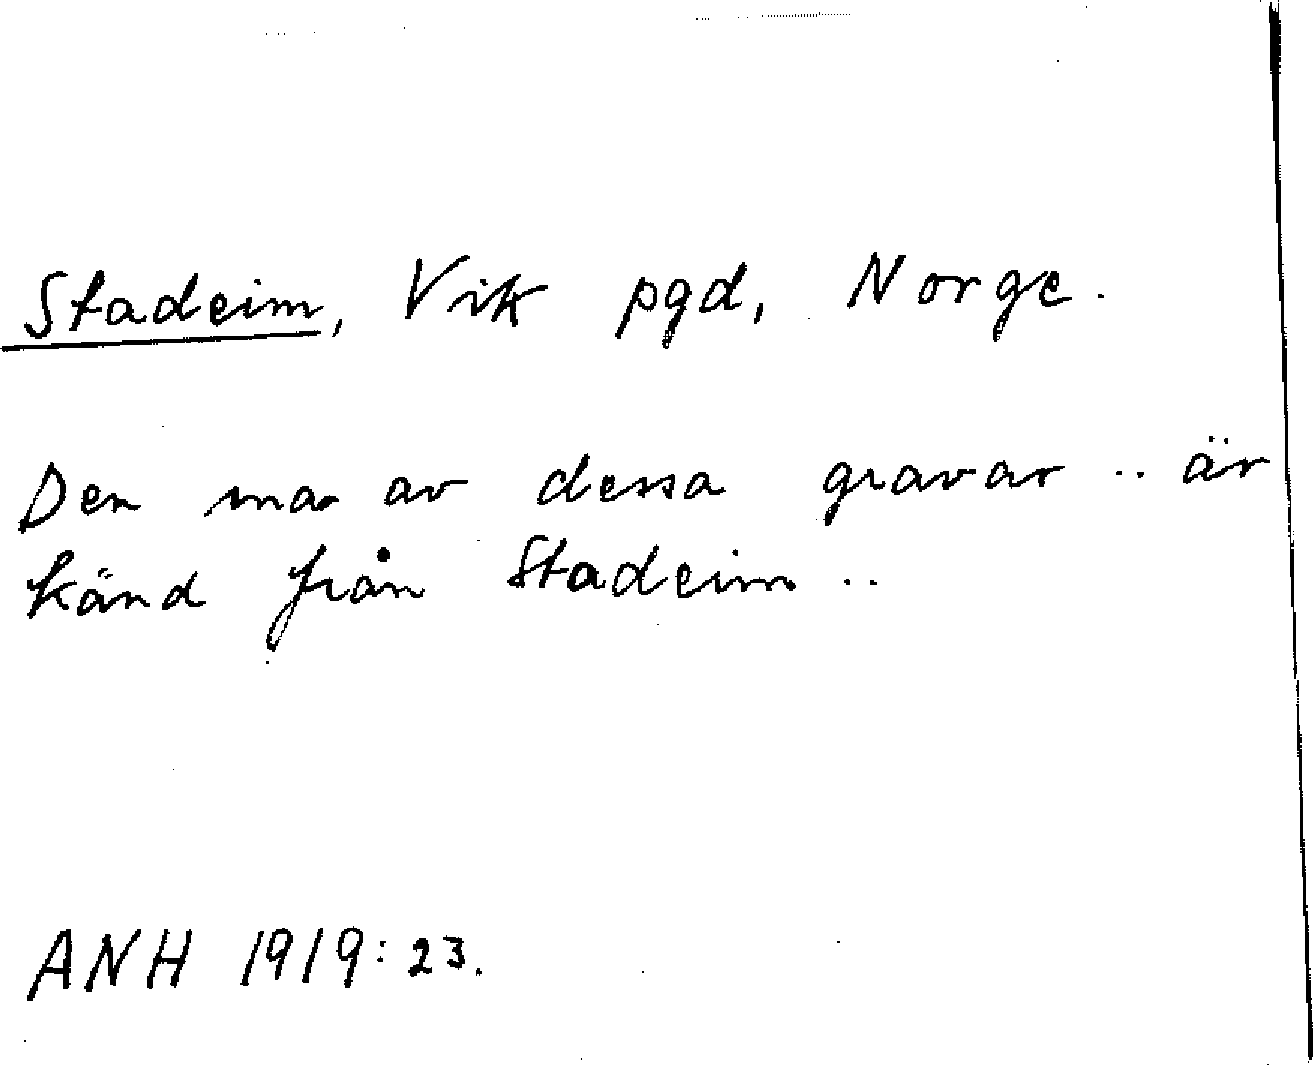 Stadeim, Vik pgd, Norge.
Den ena av dessa gravar .. är
känd från Stadeim ..
ANH 1919:23.